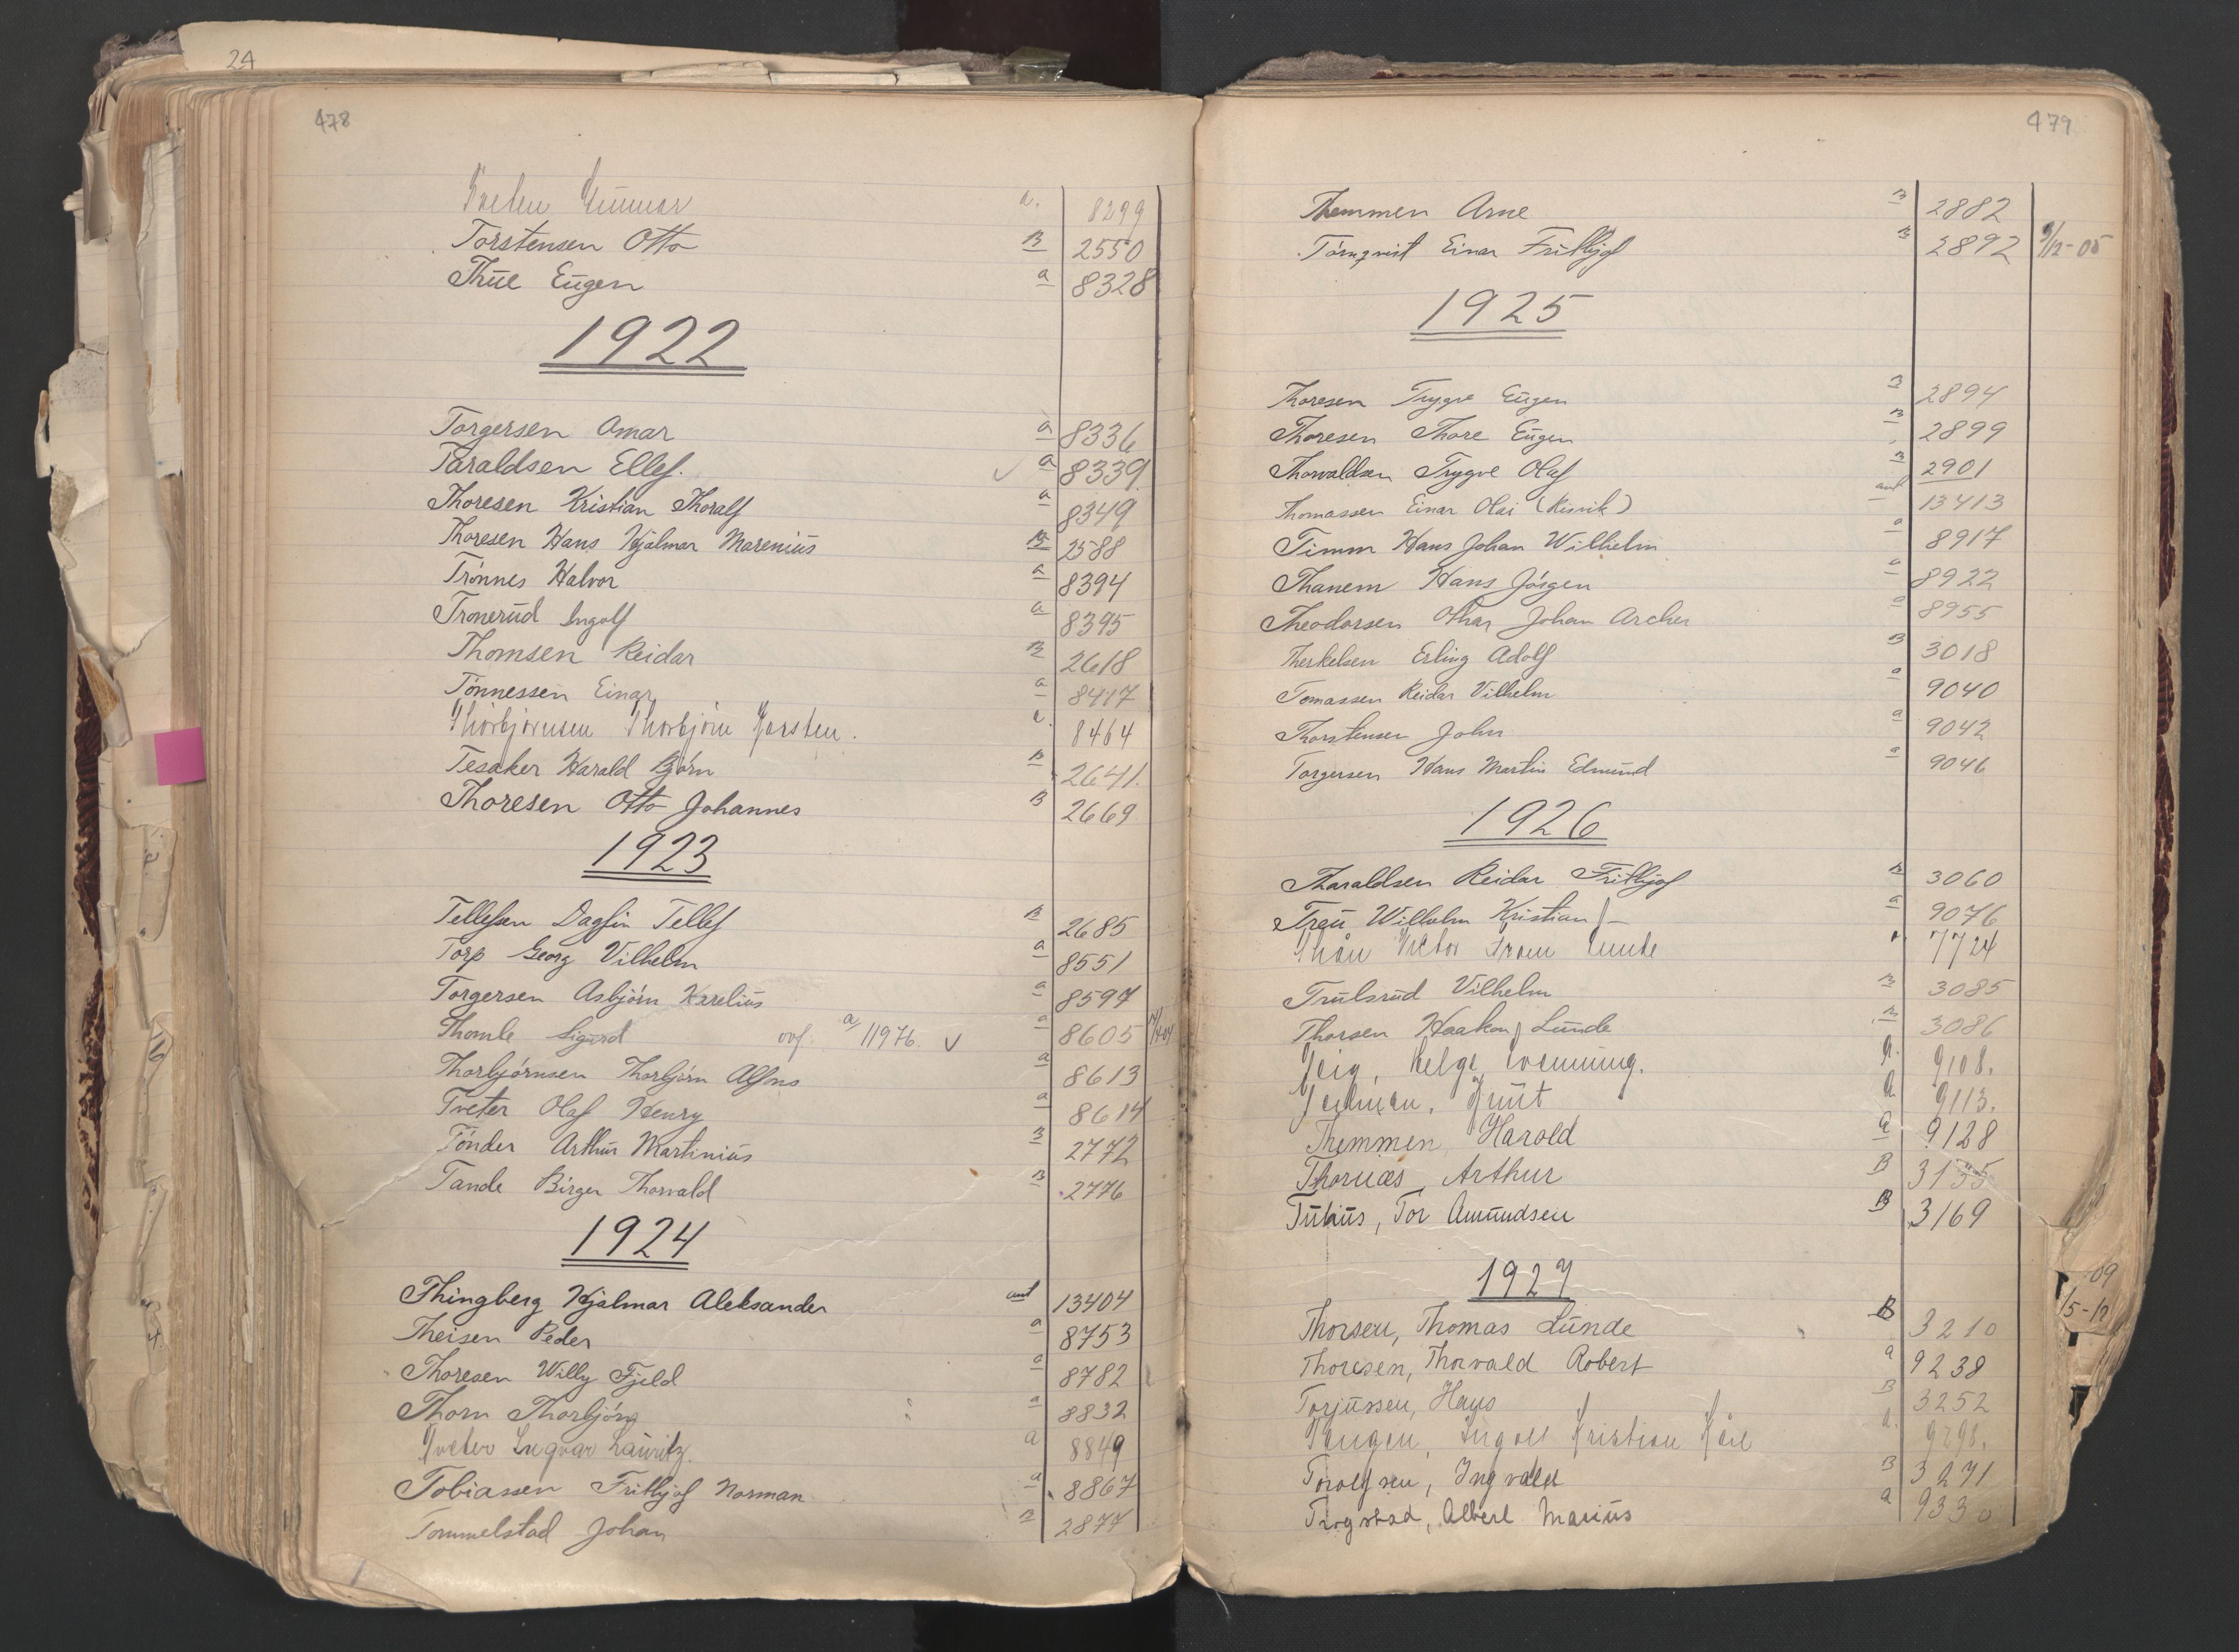 24
478
Gunnar a. 8299
Torstensen Otto B 2550
Thue Eugen a 8328
1922
Torgersen Omar a 8336
Taraldsen Ellef. ✓ a 8339
Thoresen Kristian Thoralf a 8349
Thoresen Hans Hjalmar Marenius B 2588
Trönnes Halvor a 8394
Tronerud Ingolf a 8395
Thomsen Reidar B 2618
Tönnessen Einar a 8417
Thorbjörnsen Thorbjörn Karsten. a. 8464
Tesaker Harald Björn B 2641.
Thoresen Otto Johannes B 2669
1923
Tellefsen Dagfin Tellef B 2685
Torp Georg Vilhelm a 8551
Torgersen Asbjörn Karelius a 8597
Thomle Sigurd ovf. a/11976 ✓ a 8605
Thorbjörnsen Thorbjörn Alfons a 8613
Tveter Olaf Henry a 8614
Tönder Arthur Martinius B 2772
Tande Birger Thorvald B 2776
1924
Thingberg Hjalmar Aleksander aut 13404
Theisen Peder a 8753
Thoresen Willy Fjeld a 8782
Thorn Thorbjörn a 8832
Tveter Ingvar Lauritz. a 8849
Tobiassen Frithjof Norman a 8867
Tommelstad Johan B 2877
479
Themmen Arne B 2882
Törnqvist Einar Frithjof B 2892 9/12-05
1925
Thoresen Trygve Eugen B 2894
Thoresen Thore Eugen B 2899
Thorvaldsen Trygve Olaf B 2901
Thomassen Einar Olai (Risvik) aut 13413
Timm Hans Johan Wilhelm a 8917
Thanem Hans Jörgen a 8922
Theodorsen Othar Johan Archer a 8955
Therkelsen Erling Adolf B 3018
Tomassen Reidar Vilhelm a 9040
Thorstensen John a 9042
Torgersen Hans Martin Edmund a 9046
1926
Tharaldsen Reidar Frithjof B 3060
Treu Wilhelm Kristian a 9076
7724
Trulsrud Vilhelm B 3085
Thorsen Haakon Lunde B 3086
Helge a. 9108.
Knut a 9113.
Themmen Harald a 9128
Thornæs, Arthur B 3155
Tor Amundsen B 3169
1927
Thorsen, Thomas Lunde B 3210
Thoresen, Thorvald Robert a 9238
Torjussen, Hans B 3252
Tangen, Kristian a. 9298.
Torolfsen, Ingvald B 3271
Trogstad, Albert Marius a 9330
09
15-12